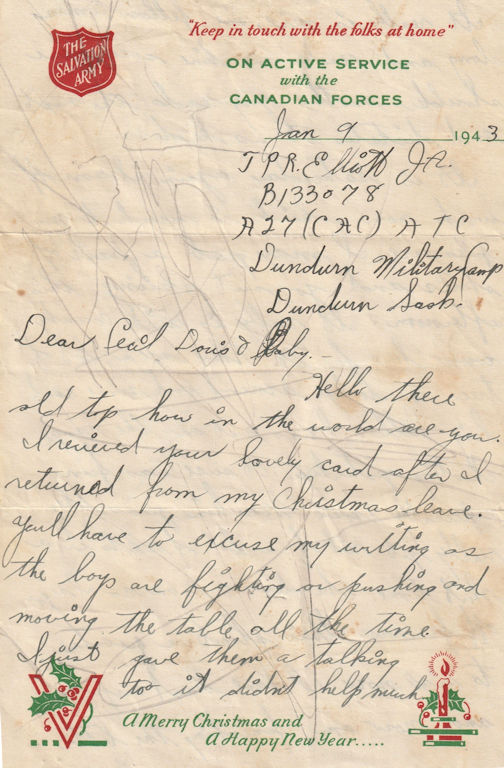 THE
SALVATION
ARMY
"Keep in touch with the folks at home"
ON ACTIVE SERVICE
with the
CANADIAN FORCES
Jan 9 1943
TPR. Elliott J.A.
B133078
A27 (CAC) ATC
Dundurn Military Camp
Dundurn Sask.
Dear Cecil Doris & Baby.
Hello there
old top how in the world are you.
I recieved your lovely card after I
returned from my Christmas leave.
You'll have to excuse my writing as
the boys are fighting or pushing and
moving the table, all the time
I just gave them a talking
too it didn't help much
V
A Merry Christmas and
A Happy New Year.....